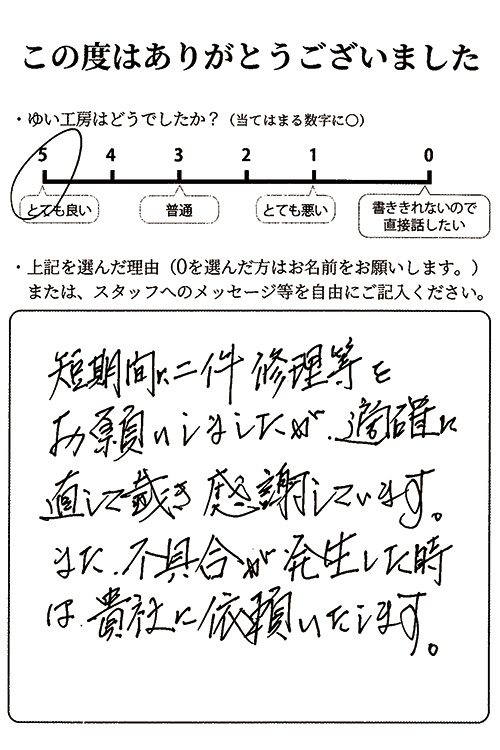 この度はありがとうございました
・ゆい工房はどうでしたか？（当てはまる数字に〇）
5 4 3 2 1 0
とても良い 普通 とても悪い 書ききれないので
直接話したい
・上記を選んだ理由（0を選んだ方はお名前をお願いします。）
または、スタッフへのメッセージ等を自由にご記入ください。
短期間に二件修理等を
お願いしましたが、適確に
直して戴き感謝しています。
また、不具合が発生した時
は、貴社に依頼いたします。